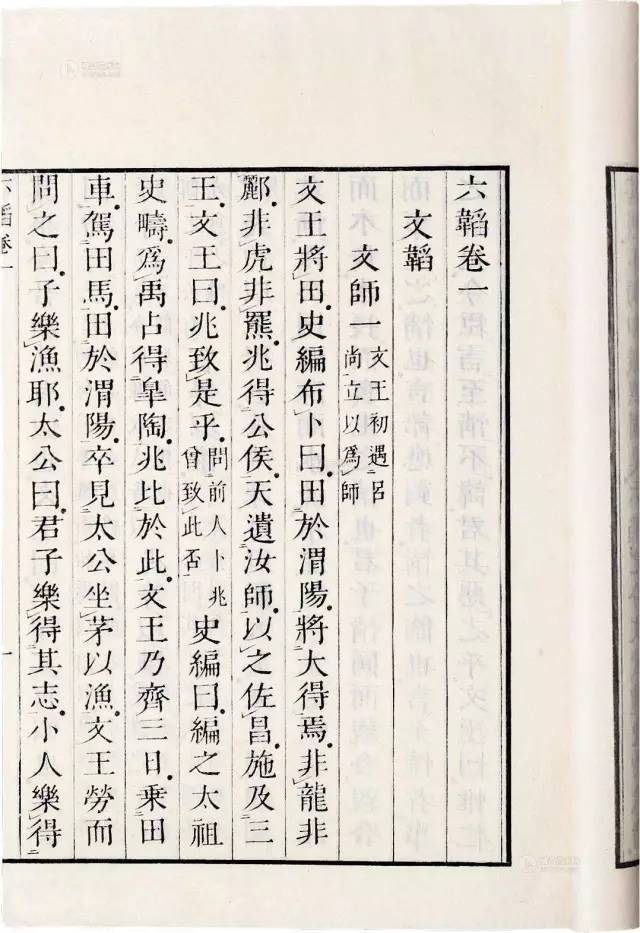 六韜卷一
文韜
文師一
文王初遇呂
尚立以爲師
文王將田史編布卜曰田於渭陽將大得焉非龍非
彲非虎非羆兆得公侯天遺汝師以之佐昌施及三
王文王曰兆致是乎
問前人卜兆
曾致此否
史編曰編之太祖
史疇爲禹占得皐陶兆比於此文王乃齊三日乘田
車駕田馬田於渭陽卒見太公坐茅以漁文王勞而
問之曰子樂漁耶太公曰君子樂得其志小人樂得
六韜卷一
一